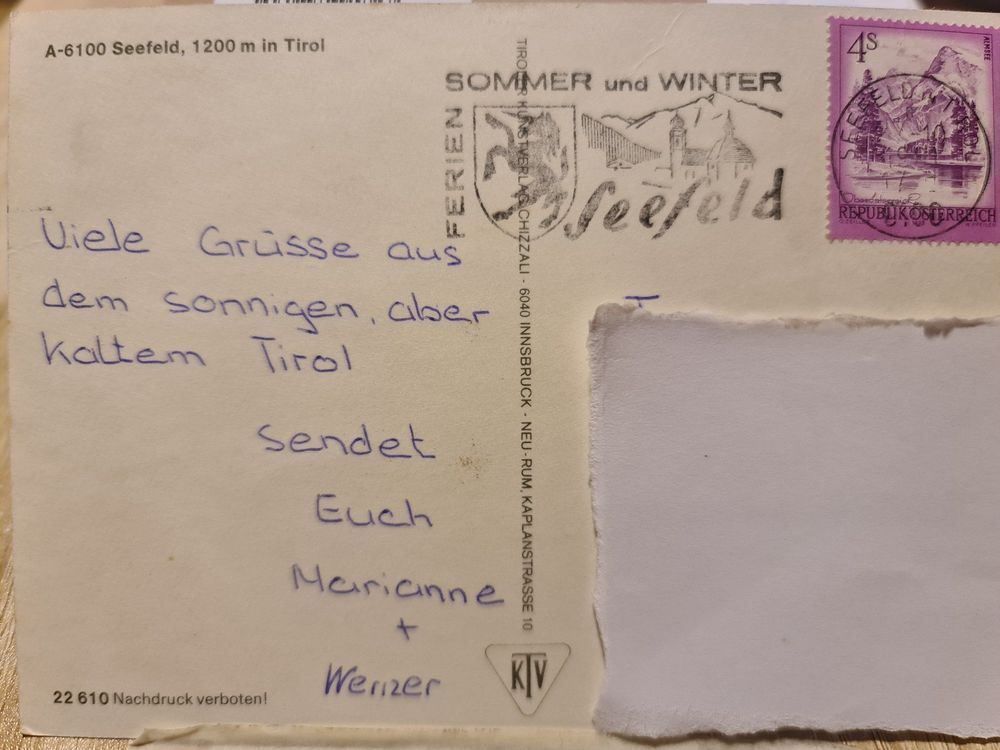 A-6100 Seefeld, 1200 m in Tirol
SOMMER und WINTER
FERIEN
Seefeld
4S
ALMSEE
REPUBLIK ÖSTERREICH
SEEFELD IN TIROL
6100
Viele Grüsse aus
dem sonnigen, aber
kaltem Tirol
sendet
Euch
Marianne
+
Werner
TIROLER KUNSTVERLAG CHIZZALI - 6040 INNSBRUCK - NEU-RUM, KAPLANSTRASSE 10
KTV
22 610 Nachdruck verboten!